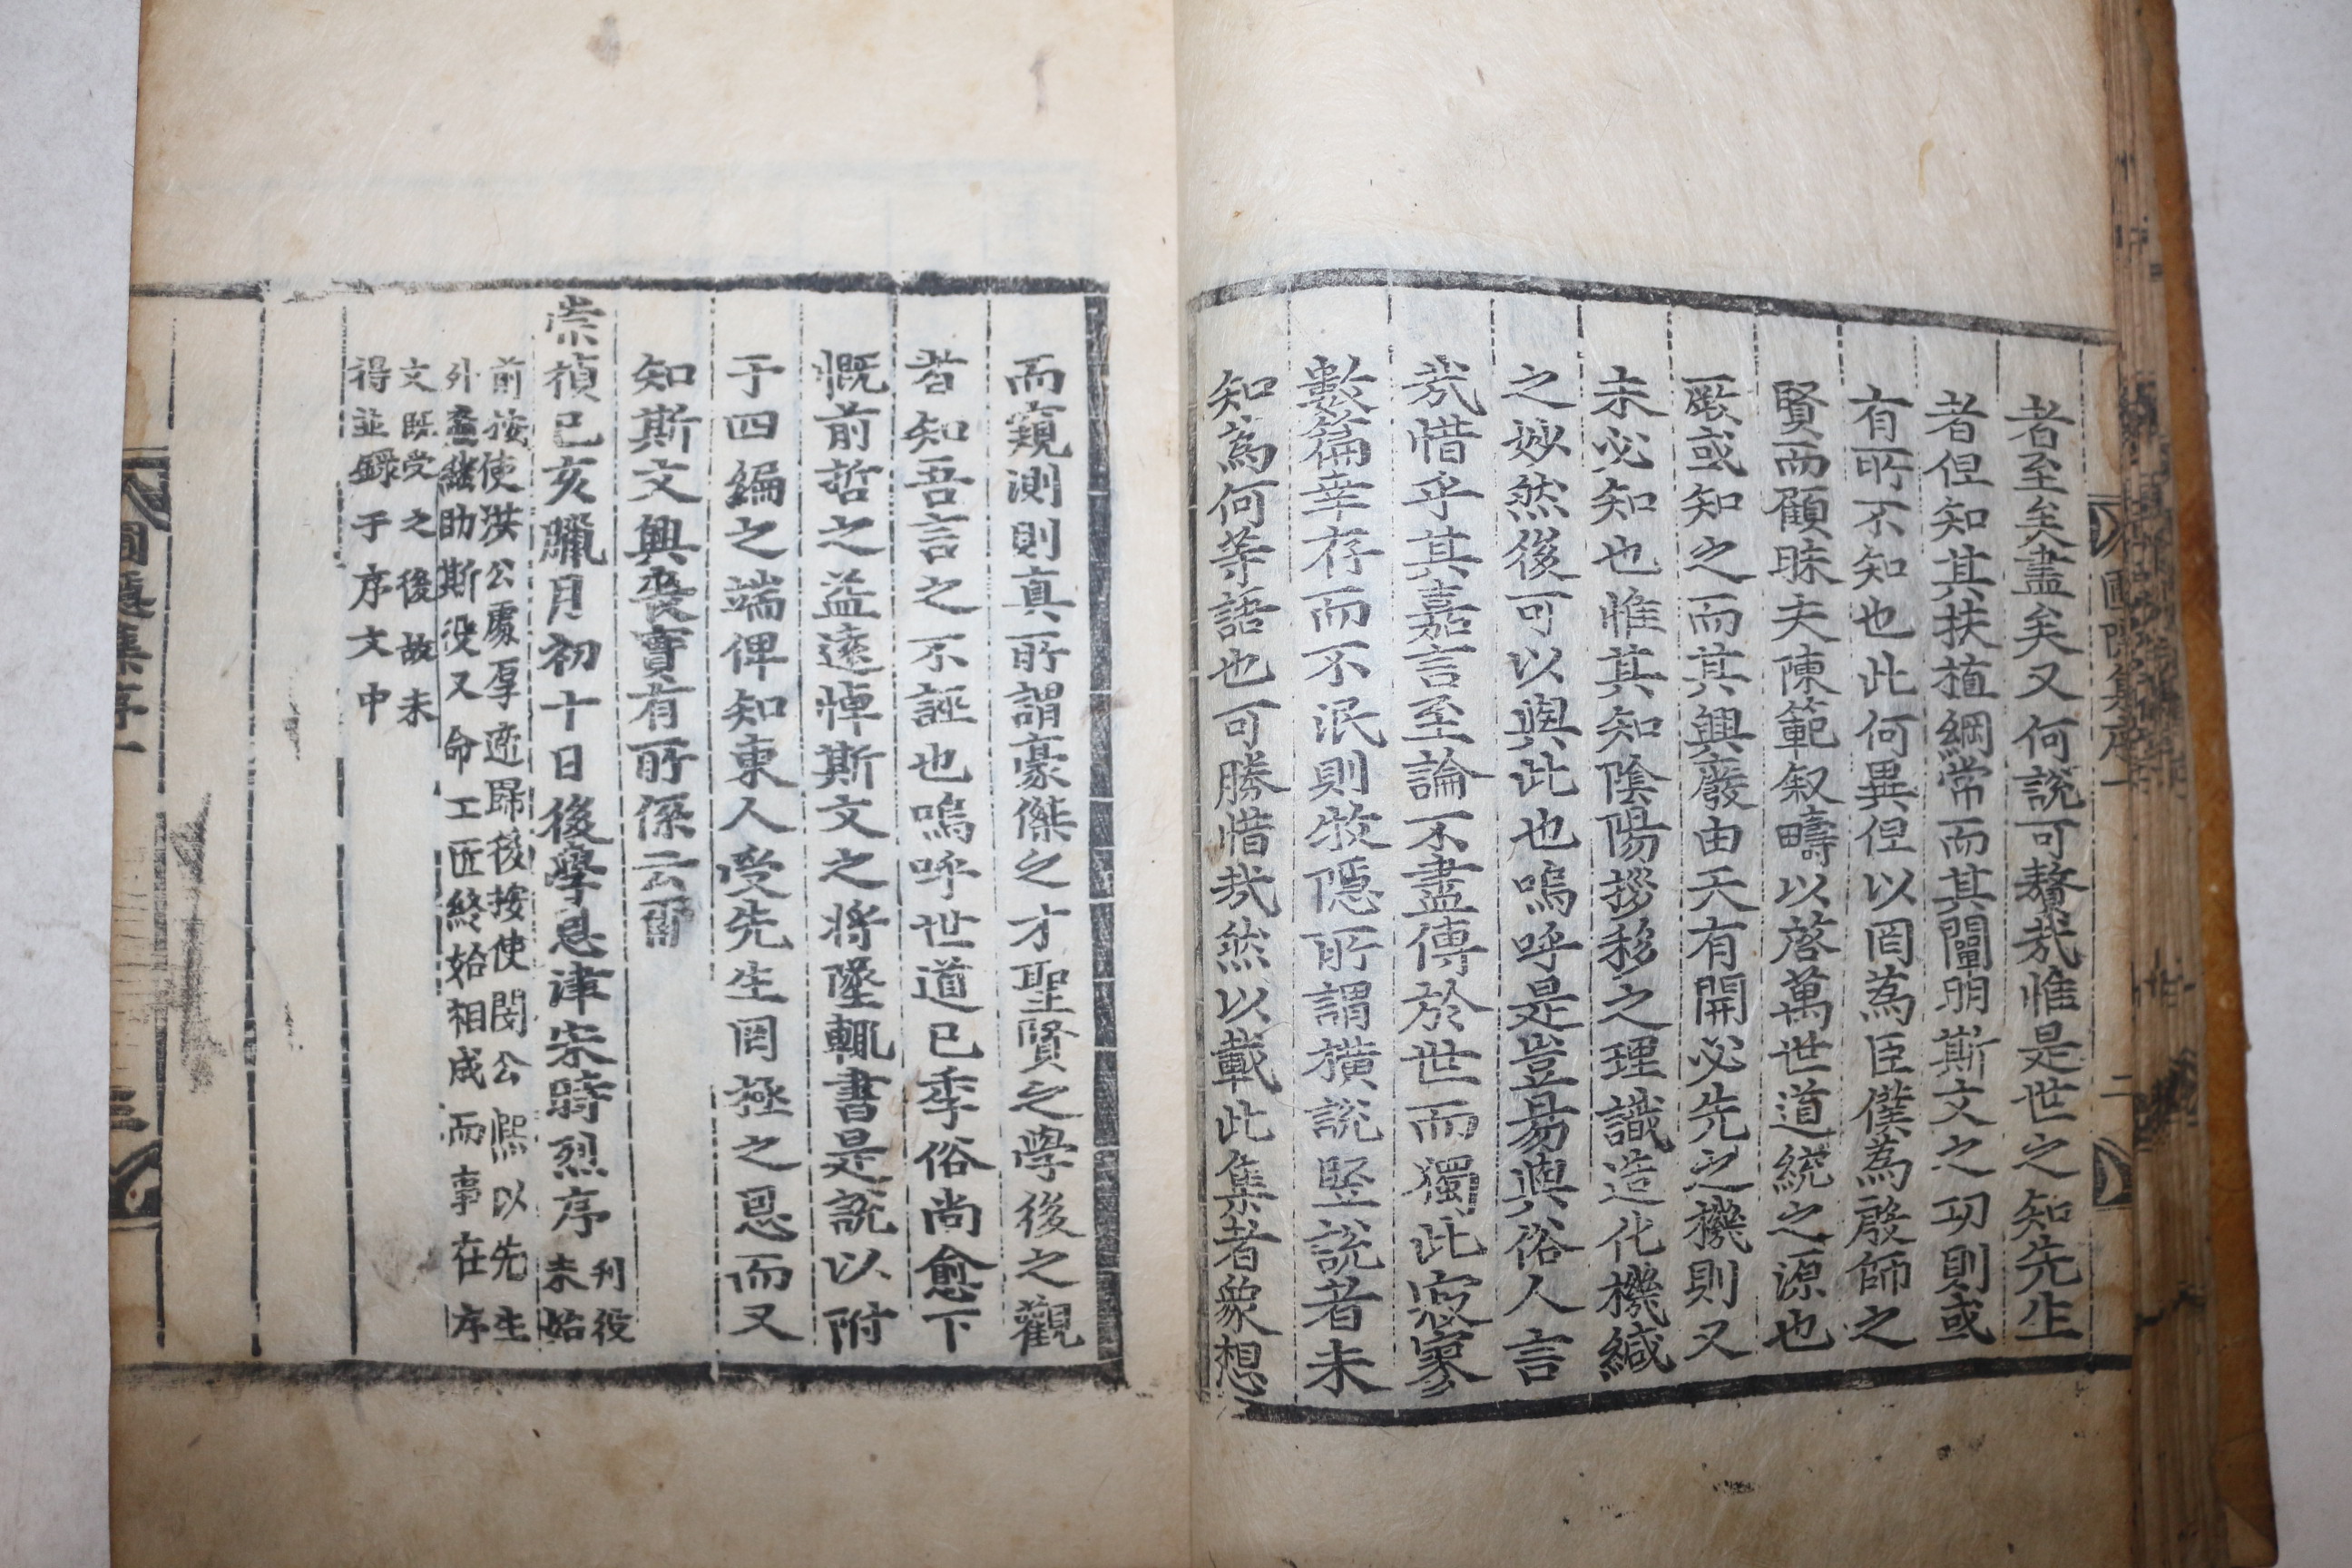 圃隱集序一
二
者至矣盡矣又何說可贅哉惟是世之知先生
者但知其扶植綱常而其闡明斯文之功則或
有所不知也此何異但以罔爲臣僕爲殷師之
賢而顧昧夫陳範叙疇以啓萬世道統之源也
厥或知之而其興廢由天有開必先之機則又
未必知也惟其知陰陽推移之理識造化機緘
之妙然後可以與此也嗚呼是豈易與俗人言
哉惜乎其嘉言至論不盡傳於世而獨此寂寥
數篇幸存而不泯則牧隱所謂橫說竪說者未
知爲何等語也可勝惜哉然以載此集者象想
而窺測則眞所謂豪傑之才聖賢之學後之觀
者知吾言之不誣也嗚呼世道已季俗尚愈下
慨前哲之益遠悼斯文之將墜輒書是說以附
于四編之端俾知東人受先生罔極之恩而又
知斯文興喪實有所係云爾
崇禎己亥臘月初十日後學恩津宋時烈序
刊役
未始
前按使洪公處厚遞歸後按使閔公熙以先生
外裔繼助斯役又命工匠終始相成而事在序
文旣受之後故未
得並錄于序文中
圃隱集序一
三